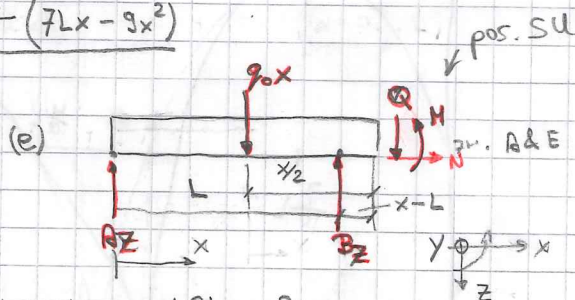 -(7Lx - 9x²)
pos. SU
q₀x
Q
M
(e)
N
A & E
x/2
L
x-L
Az
x
Bz
Y
x
z